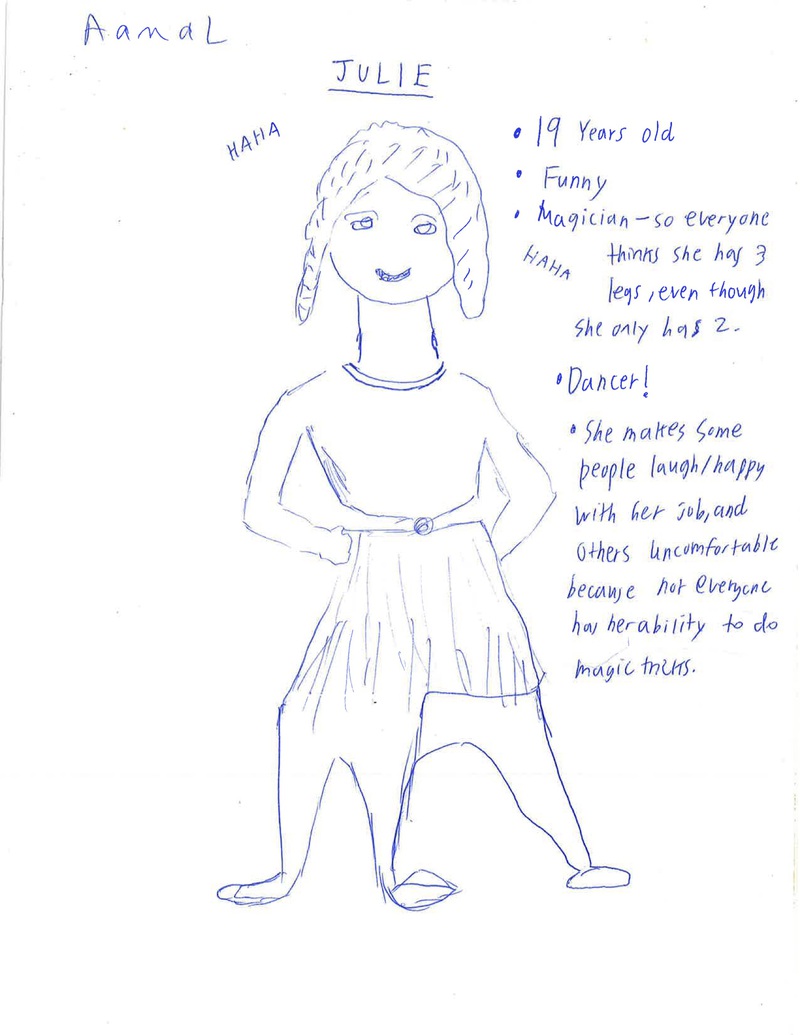 AamaL
JULIE
HAHA
• 19 Years old
• Funny
• Magician - so everyone
thinks she has 3
HAHA
legs, even though
she only has 2.
• Dancer!
• She makes some
people laugh/happy
with her job, and
others uncomfortable
because not everyone
has her ability to do
magic tricks.